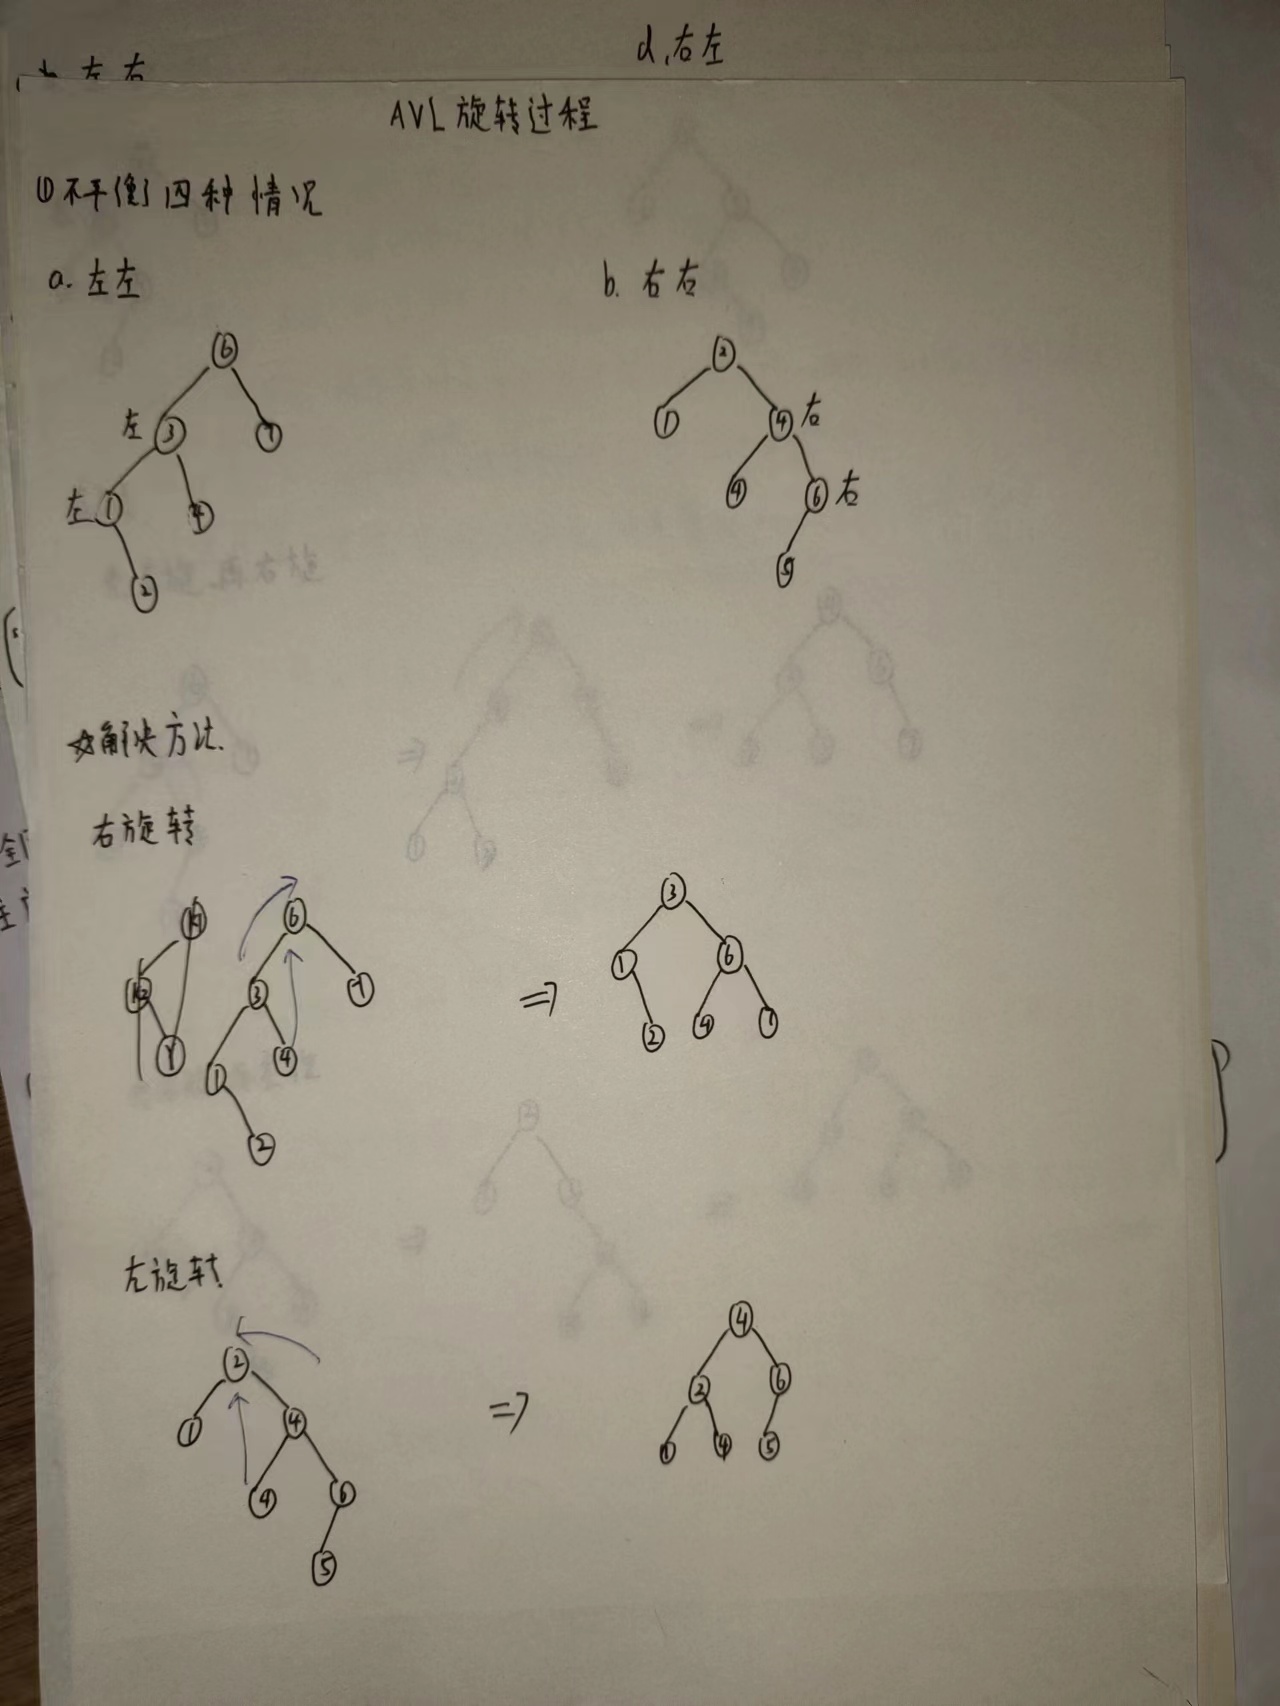 b. 左右
d. 右左
AVL 旋转过程
① 不平衡四种情况
a. 左左
b. 右右
6
左 3 7
左 1 4
2
2
1 4 右
4 6 右
5
☆解决方法.
右旋转
K1
K2
Y
6
3 7
1 4
2
⇒
3
1 6
2 4 7
左旋转.
2
1 4
4 6
5
⇒
4
2 6
1 4 5